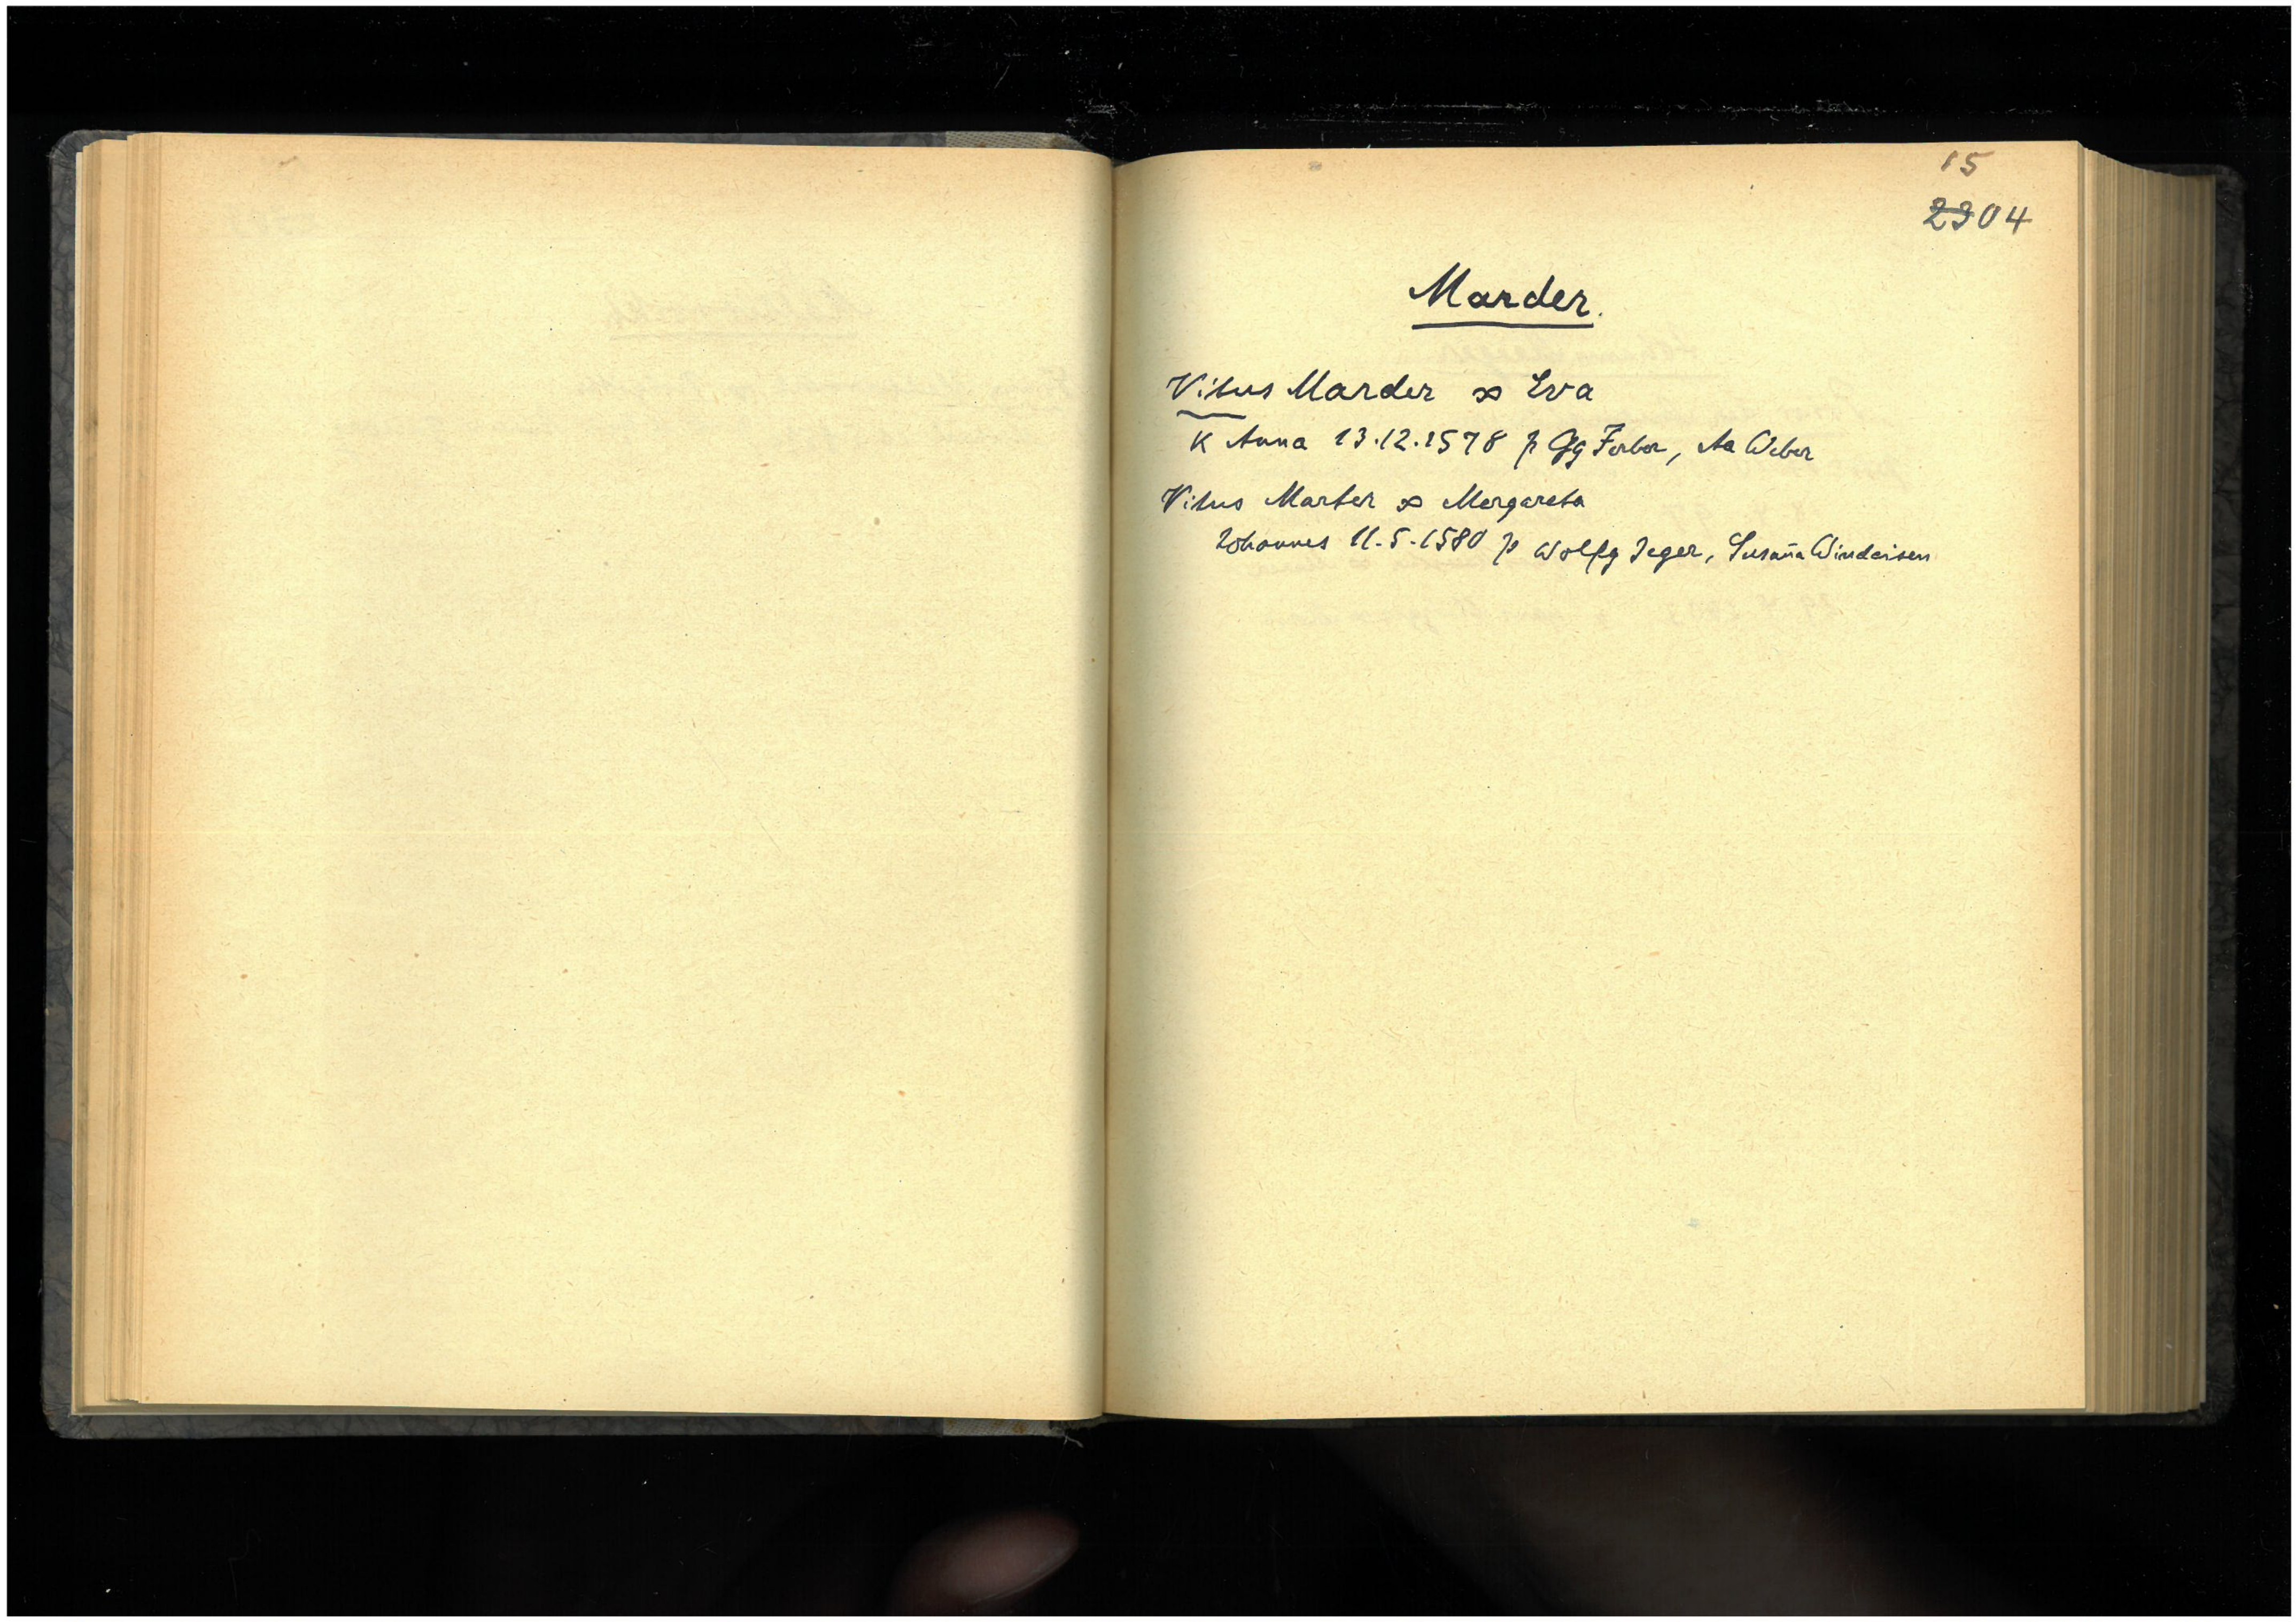 15
2304
Marder.
Vitus Marder ∞ Eva
K Anna 13.12.1578 p Gg Ferber, Aa Weber
Vitus Marter ∞ Margareta
Johannes 11.5.1580 p Wolfg Jeger, Susan̄a Windeisen